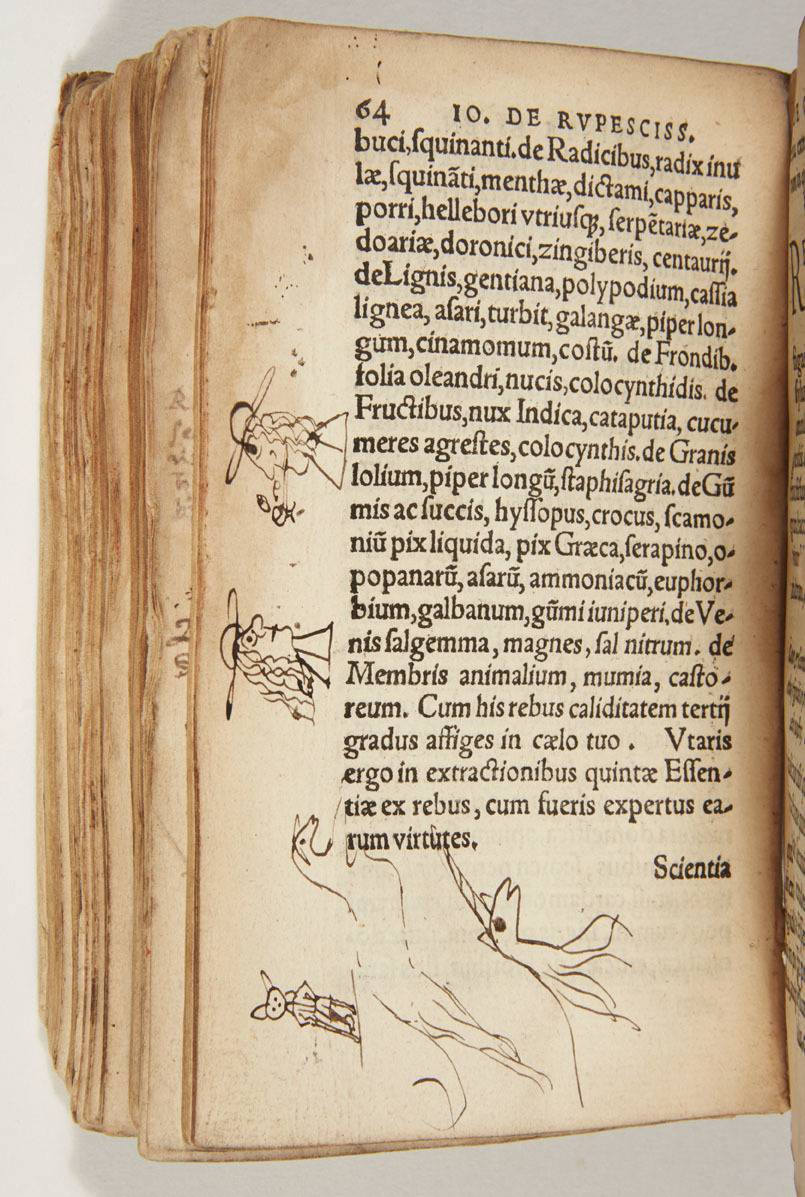 64 IO. DE RVPESCISS.
buci,ſquinanti.de Radicibus,radix inu
læ,ſquinãti,menthæ,dictami,capparis,
porri,hellebori vtriuſq;, ſerpẽtariæ,ze-
doariæ,doronici,zingiberis, centaurij.
deLignis,gentiana,polypodium,caſſia
lignea, aſari,turbit,galangæ,piper lon-
gum,cinamomum,coſtũ. de Frondib.
folia oleandri,nucis,colocynthidis. de
Fructibus,nux Indica,cataputia, cucu-
meres agreſtes,colocynthis.de Granis
lolium,piper longũ,ſtaphiſagria.deGũ
mis ac ſuccis, hyſſopus,crocus, ſcamo-
niũ pix liquida, pix Græca,ſerapino,o-
popanarũ, aſarũ, ammoniacũ,euphor-
bium,galbanum,gũmi iuniperi.de Ve-
nis ſalgemma, magnes, ſal nitrum. de
Membris animalium, mumia, caſto-
reum. Cum his rebus caliditatem tertij
gradus affiges in cælo tuo. Vtaris
ergo in extractionibus quintæ Eſſen-
tiæ ex rebus, cum fueris expertus ea-
rum virtutes.
Scientia